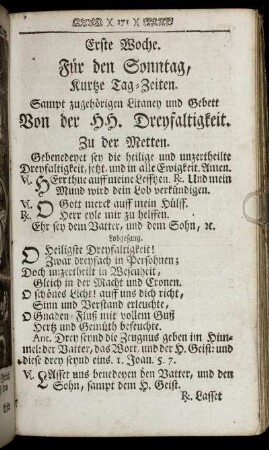 171
Erste Woche.
Für den Sonntag,
Kurtze Tag-Zeiten.
Sampt zugehörigen Litaney und Gebett
Von der HH. Dreyfaltigkeit.
Zu der Metten.
Gebenedeyet sey die heilige und unzertheilte
Dreyfaltigkeit, jetzt, und in alle Ewigkeit. Amen.
℣. HErr thue auff meine Lefftzen. ℟. Und mein
Mund wird dein Lob verkündigen.
℣. O Gott merck auff mein Hülff.
℟. O Herr eyle mir zu helffen.
Ehr sey dem Vatter, und dem Sohn, ꝛc.
Lobgesang.
O Heiligste Dreyfaltigkeit!
Zwar dreyfach in Persohnen;
Doch unzertheilt in Wesenheit,
Gleich in der Macht und Cronen.
O schönes Liecht! auff uns dich richt,
Sinn und Verstand erleuchte,
O Gnaden-Fluß mit vollem Guß
Hertz und Gemüth befeuchte.
Ant. Drey seynd die Zeugnus geben im Him-
mel: der Vatter, das Wort, und der H. Geist: und
diese drey seynd eins. 1. Joan. 5. 7.
℣. LAsset uns benedeyen den Vatter, und den
Sohn, sampt dem H. Geist.
℟. Lasset